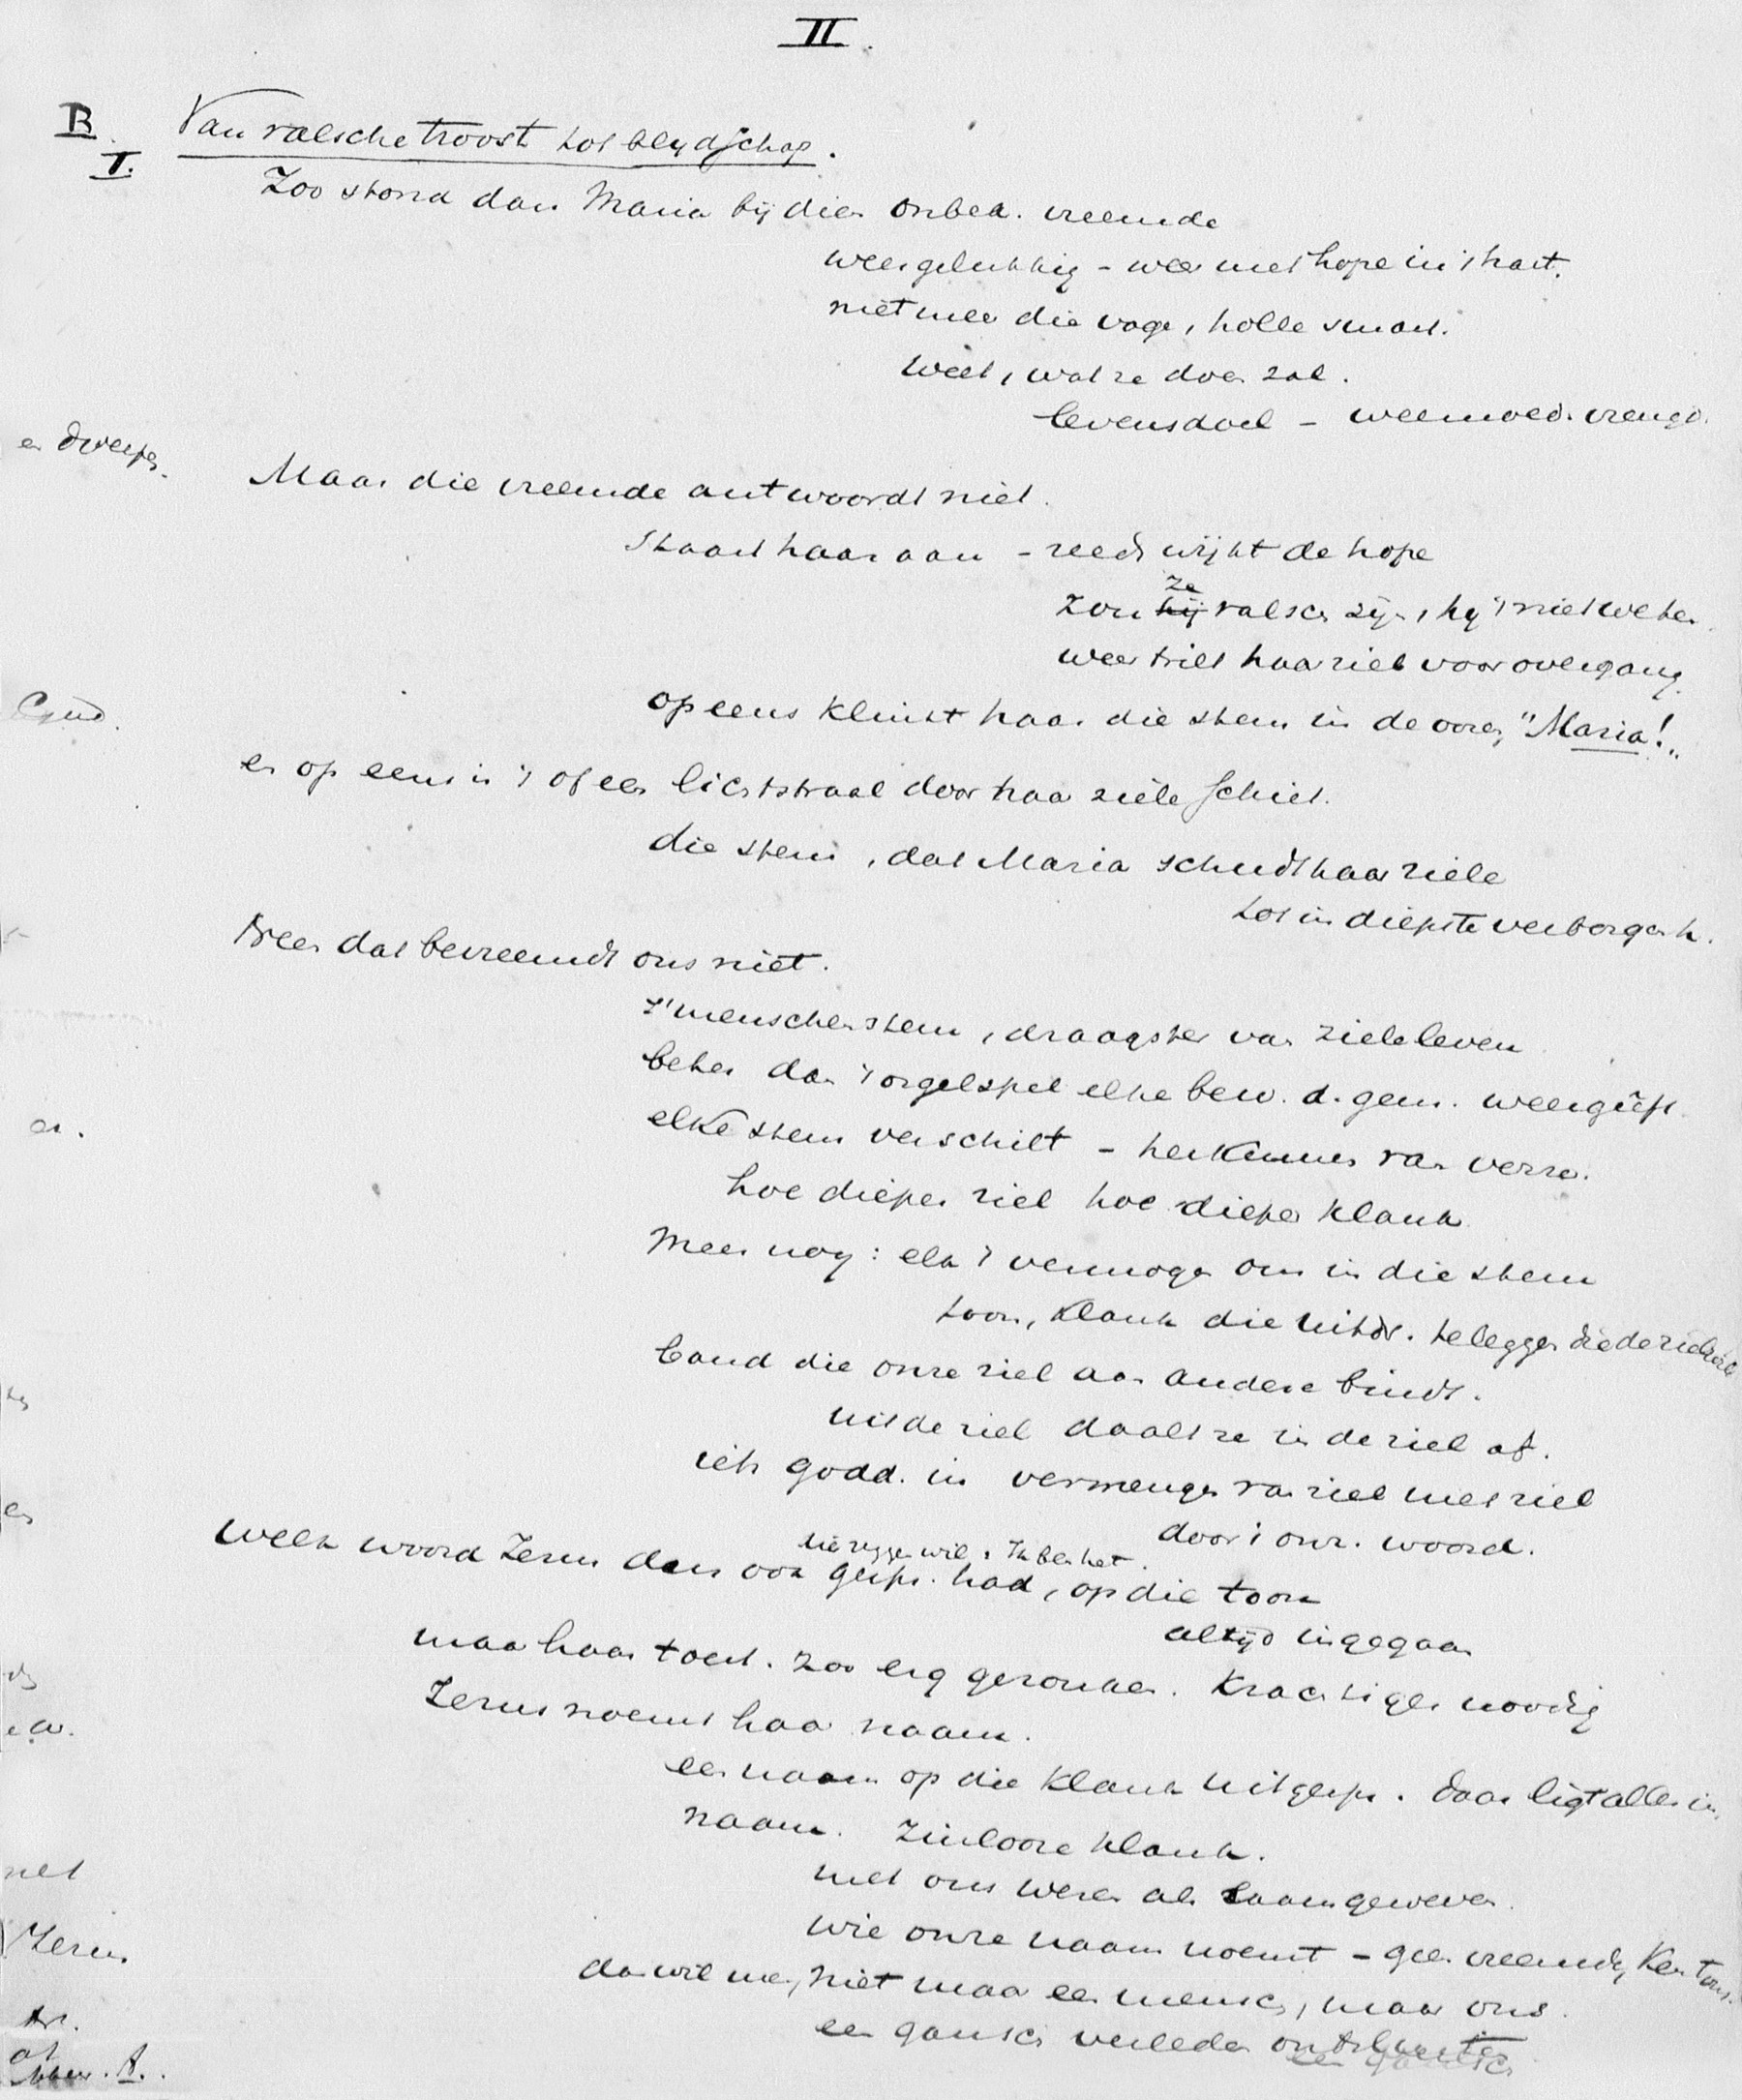 II.
B. Van valsche troost tot blijdschap.
I.
Zoo stond dan Maria bij dien onbek. vreemde
weer gelukkig - weer met hope in 't hart.
niet meer die vage, holle smart.
weet, wat ze doen zal.
levensdoel - weemoed. vreugd.
en
Maar die vreemde antwoordt niet.
Staart haar aan - reeds wijkt de hope
zou hij ze valsch zijn, hij 't niet weten.
weer trilt haar ziel voor overgang.
opeens klinkt haar die stem in de ooren, "Maria!"
en op eens is 't of een lichtstraal door haar ziele schiet.
die stem, dat Maria schudt haar ziele
tot in diepste verborgenh.
Neen dat bevreemdt ons niet.
's menschen stem, draagster van zieleleven
beter dan 't orgelspel elke bew. d. gem. weergeeft.
elke stem verschilt - herkennen van verre.
hoe dieper ziel hoe dieper klank
Meer nog: elk 't vermogen om in die stem
toon, klank die uitdr. te leggen die de ziel
band die onze ziel aan andere bindt.
uit de ziel daalt ze in de ziel af.
iets godd. in vermengen van ziel met ziel
door 't onz. woord.
hier zeggen wil: Ik ben het.
Welk woord Jezus dan ook gespr. had, op die toon
altijd ingegaan
maar haar toest. zoo erg gezonken. Krachtiger noodig
Jezus noemt haar naam.
een naam op die klank uitgespr. daar ligt alles in.
naam. Zinlooze klank.
met ons wezen als saamgeweven.
wie onze naam noemt - geen vreemde, kent ons.
dan wil men, niet maar een mensch, maar ons.
een gansch verleden
net
Jezus